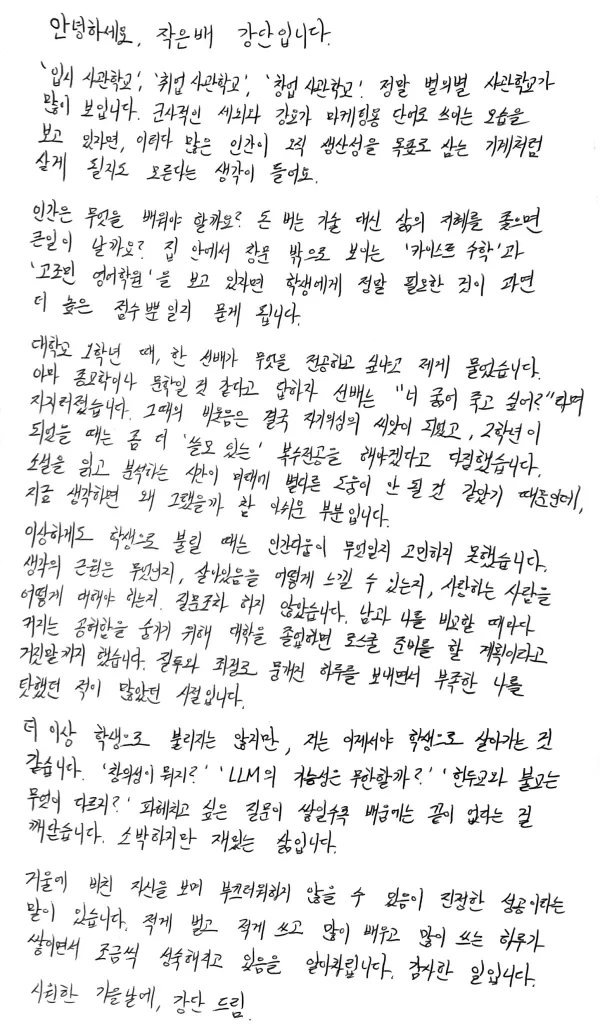 안녕하세요, 작은배 강단입니다.
'입시 사관학교', '취업 사관학교', '창업 사관학교'. 정말 별의별 사관학교가
많이 보입니다. 군사적인 세뇌와 강요가 마케팅용 단어로 쓰이는 모습을
보고 있자면, 이러다 많은 인간이 오직 생산성을 목표로 삼는 기계처럼
살게 될지도 모른다는 생각이 들어요.
인간은 무엇을 배워야 할까요? 돈 버는 기술 대신 삶의 지혜를 좇으면
큰일이 날까요? 집 안에서 창문 밖으로 보이는 '카이스트 수학'과
'고조민 영어학원'을 보고 있자면 학생에게 정말 필요한 것이 과연
더 높은 점수뿐일지 묻게 됩니다.
대학교 1학년 때, 한 선배가 무엇을 전공하고 싶냐고 제게 물었습니다.
아마 종교학이나 문학일 것 같다고 답하자 선배는 "너 굶어 죽고 싶어?"라며
자지러졌습니다. 그때의 비웃음은 결국 자기의심의 씨앗이 되었고, 2학년이
되었을 때는 좀 더 '쓸모 있는' 복수전공을 해야겠다고 다짐했습니다.
소설을 읽고 분석하는 시간이 미래에 별다른 도움이 안 될 것 같았기 때문인데,
지금 생각하면 왜 그랬을까 참 아쉬운 부분입니다.
이상하게도 학생으로 불릴 때는 인간다움이 무엇일지 고민하지 못했습니다.
생각의 근원은 무엇인지, 살아있음을 어떻게 느낄 수 있는지, 사랑하는 사람을
어떻게 대해야 하는지. 질문조차 하지 않았습니다. 남과 나를 비교할 때마다
커지는 공허함을 숨기기 위해 대학을 졸업하면 로스쿨 준비를 할 계획이라고
거짓말까지 했습니다. 질투와 좌절로 뭉개진 하루를 보내면서 부족한 나를
탓했던 적이 많았던 시절입니다.
더 이상 학생으로 불리지는 않지만, 저는 이제서야 학생으로 살아가는 것
같습니다. '창의성이 뭐지?' 'LLM의 가능성은 무한할까?' '힌두교와 불교는
무엇이 다르지?' 파헤치고 싶은 질문이 쌓일수록 배움에는 끝이 없다는 걸
깨닫습니다. 소박하지만 재밌는 삶입니다.
거울에 비친 자신을 보며 부끄러워하지 않을 수 있음이 진정한 성공이라는
말이 있습니다. 적게 벌고 적게 쓰고 많이 배우고 많이 쓰는 하루가
쌓이면서 조금씩 성숙해지고 있음을 알아차립니다. 감사한 일입니다.
시원한 가을날에, 강단 드림.